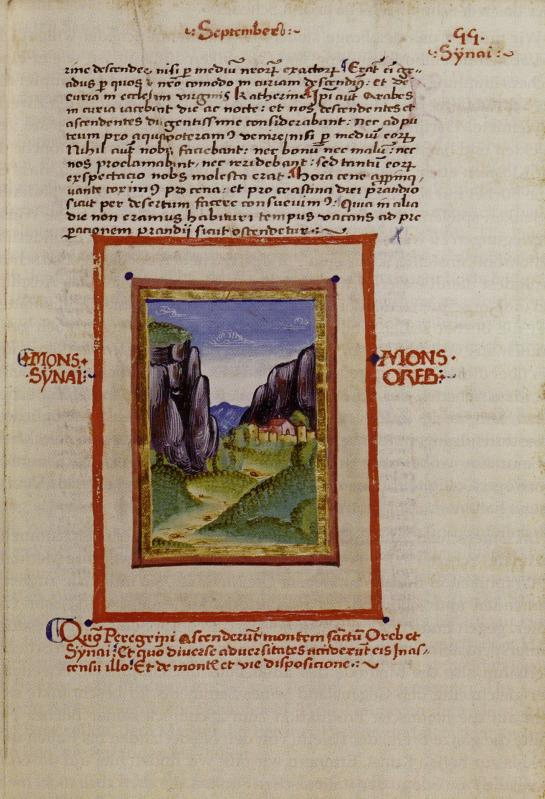 ·:Septembers:·
99
·:Sÿnai:·
rine descender nisi p mediū nrorꝝ exactorꝝ Erāt ei ge-
adus p quos nro comodo in curiam descendim9: et de
curia in ecclesim virginis Katherine Ipi aut Arabes
in curia iacebāt die ac nocte: et nos descendentes et
ascendentes diligentissime considerabant: nec ad pu
teum pro aqua poteram9 venire nisi p mediū eorꝝ
Nihil aut nobis faciebant: nec bonū nec malū: nec
nos proclamabant, nec reridebant: sed tantū eorꝝ
exspectacio nobis molesta erat Hora cene appinq-
uante coxim9 pro cena: et pro crastina diei prandio
sicut per desertum facere consuevim9: Quia in alia
die non eramus habituri tempus vacans ad pre
pacionem prandii sicut ostendetur
MONS
SŸNAI:
MONS·
OREB:
Quō Peregrini Ascenderūt montem sāctū Oreb et
Sÿnai: Et quo diverse adversitates acciderūt eis In as-
censu illo: Et de monte et vie disposicione: